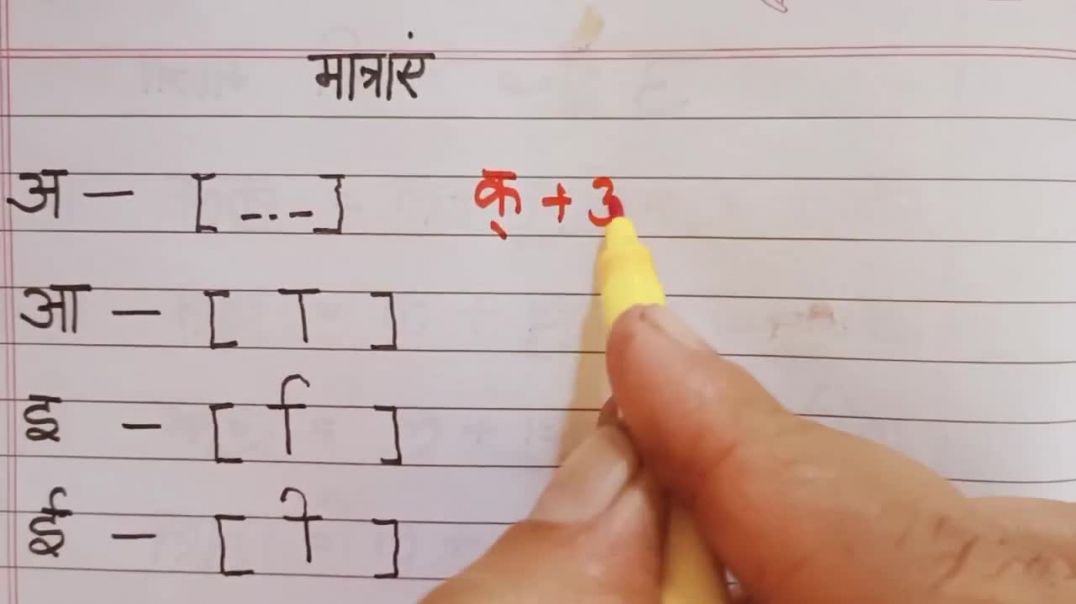 मात्राएं
अ — [ --.-- ] क् + उ
आ — [ ा ]
इ — [ ि ]
ई — [ ी ]